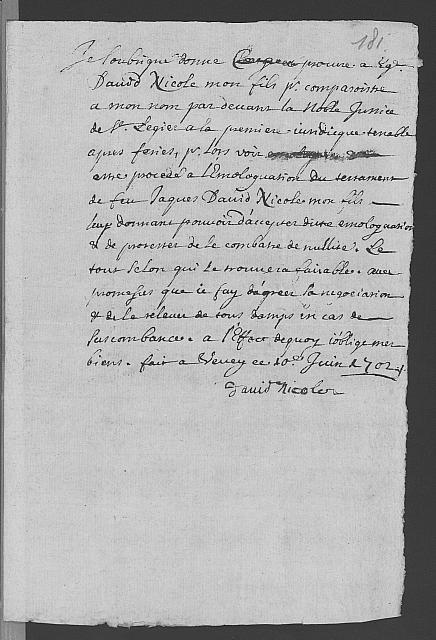 181.
Je soubsigné donne procure a Egr.
David Nicole mon fils pr. comparoistre
a mon nom par devant la Noble Justice
de St. Legier a la premiere iuridicque tenable
apres feries, pr. lors voir
estre procedé a l'Emologuation du testament
de feu Jaques David Nicole mon fils
luy donnant pouvoir d'accepter ditte emologuation
& de protester de le combatre de nullité. Le
tout selon qui le trouvera faisable. avec
promesses que ie fay d'agreer sa negociation
& de le relever de tous damps in cas de
sucombance. a l'Effect dequoy i'oblige mes
biens. fait a Vevey ce 10e. Juin 1702.
David Nicole